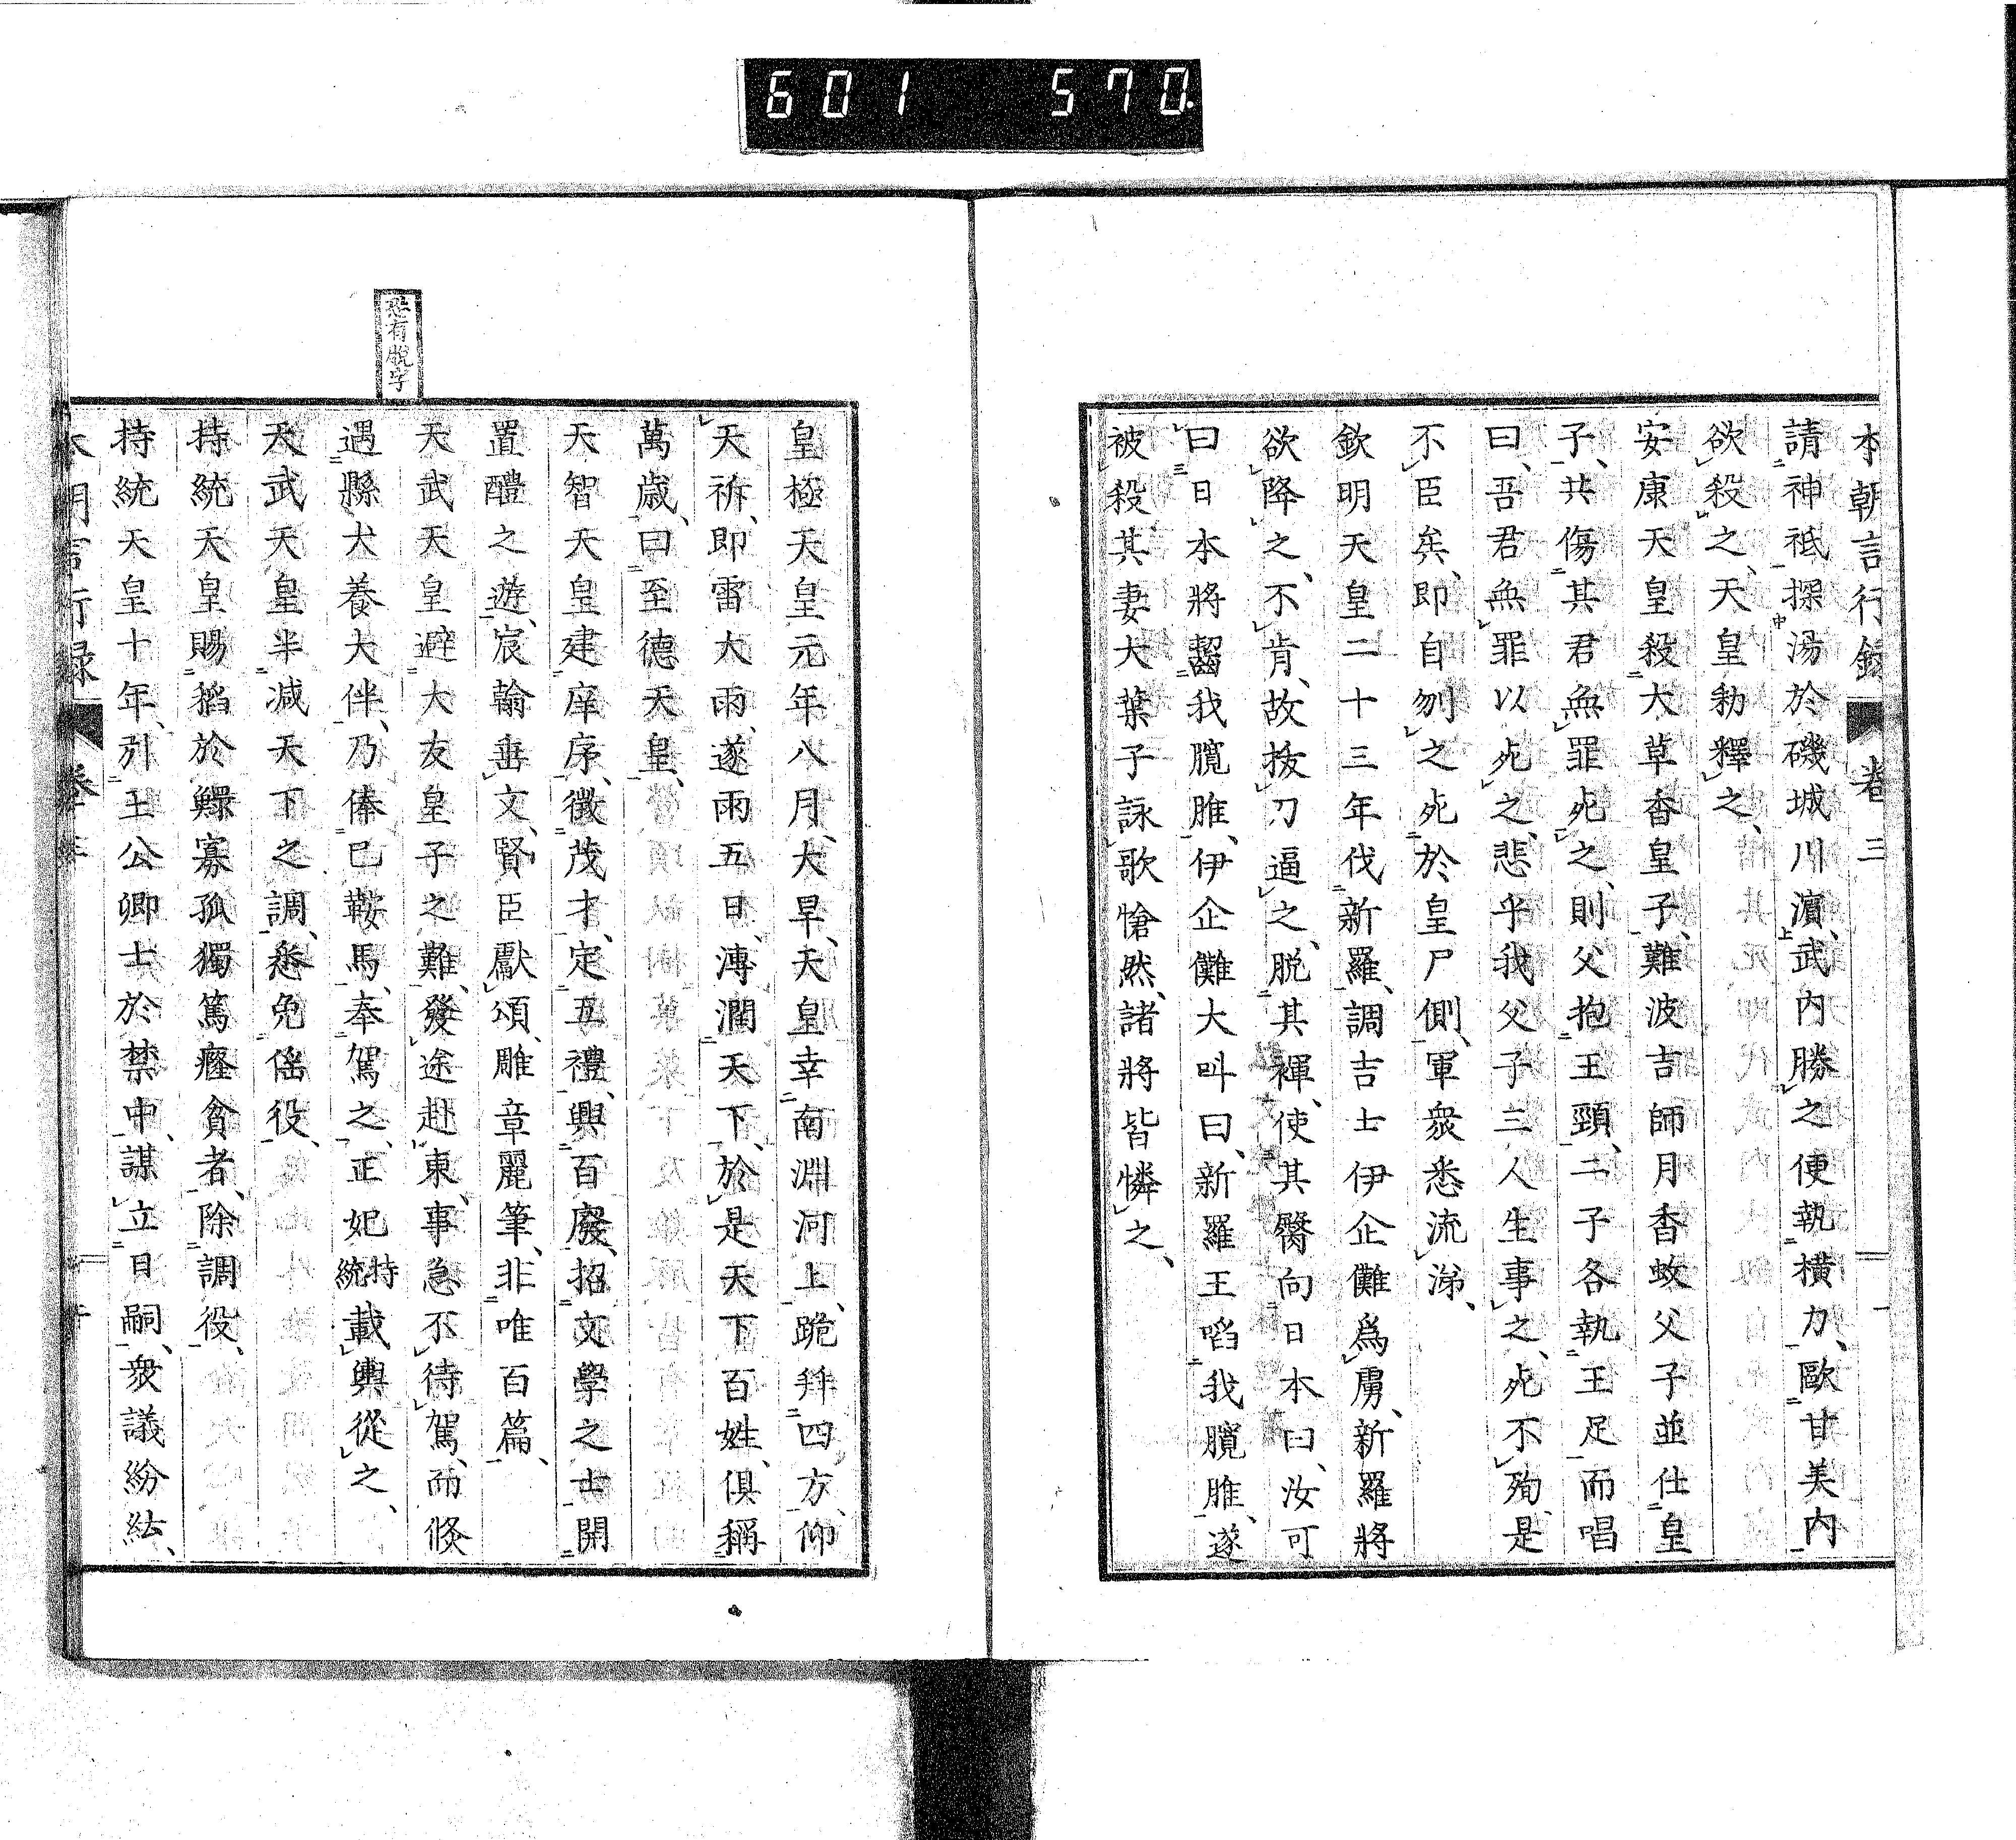 601 570.
本朝言行錄 卷三
請神祇探湯於磯城川濵、武內勝之便執橫刀、歐甘美內
欲殺之、天皇勅釋之、
安康天皇殺大草香皇子、難波吉師月香蚊父子並仕皇
子、共傷其君無罪死之、則父抱王頸、二子各執王足而唱
曰、吾君無罪以死之、悲乎我父子三人生事之、死不殉、是
不臣矣、即自刎之死於皇尸側、軍衆悉流涕、
欽明天皇二十三年伐新羅、調吉士伊企儺爲虜、新羅將
欲降之、不肯、故拔刀逼之、脫其褌、使其臋向日本曰、汝可
曰日本將齧我臗脽、伊企儺大叫曰、新羅王啗我臗脽、遂
被殺其妻大葉子詠歌愴然、諸將皆憐之、
皇極天皇元年八月、大旱、天皇幸南淵河上、跪拜四方、仰
天祈、即雷大雨、遂雨五日、溥潤天下、於是天下百姓、俱稱
萬歳、曰至德天皇、
天智天皇建庠序、徵茂才、定五禮、興百廢、招文學之士開
置醴之遊、宸翰垂文、賢臣獻頌、雕章麗筆、非唯百篇、
恐有脫字
天武天皇避大友皇子之難、發途赴東、事急不待駕、而倐
遇縣犬養大伴、乃俸巳鞍馬、奉駕之、正妃持統載輿從之、
天武天皇半減天下之調、悉免傜役、
持統天皇賜稻於鰥寡孤獨篤癃貧者、除調役、
持統天皇十年、引王公卿士於禁中、謀立日嗣、衆議紛紜、
本朝言行錄 卷三